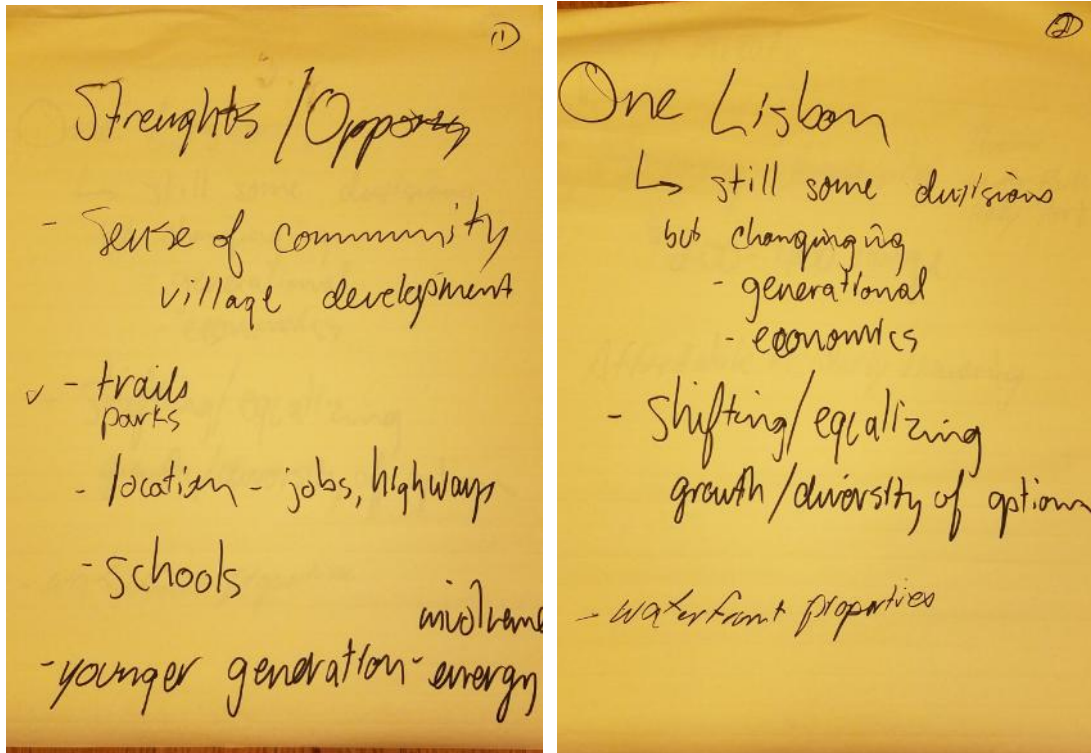 1
Strenghts / Oppor
- Sense of community
village development
✓ - trails
parks
- location - jobs, highways
- schools
involveme
- younger generation - energy
2
One Lisbon
↳ still some divisions
but changinging
- generational
- economics
- shifting/equalizing
growth/diversity of options
- waterfront properties